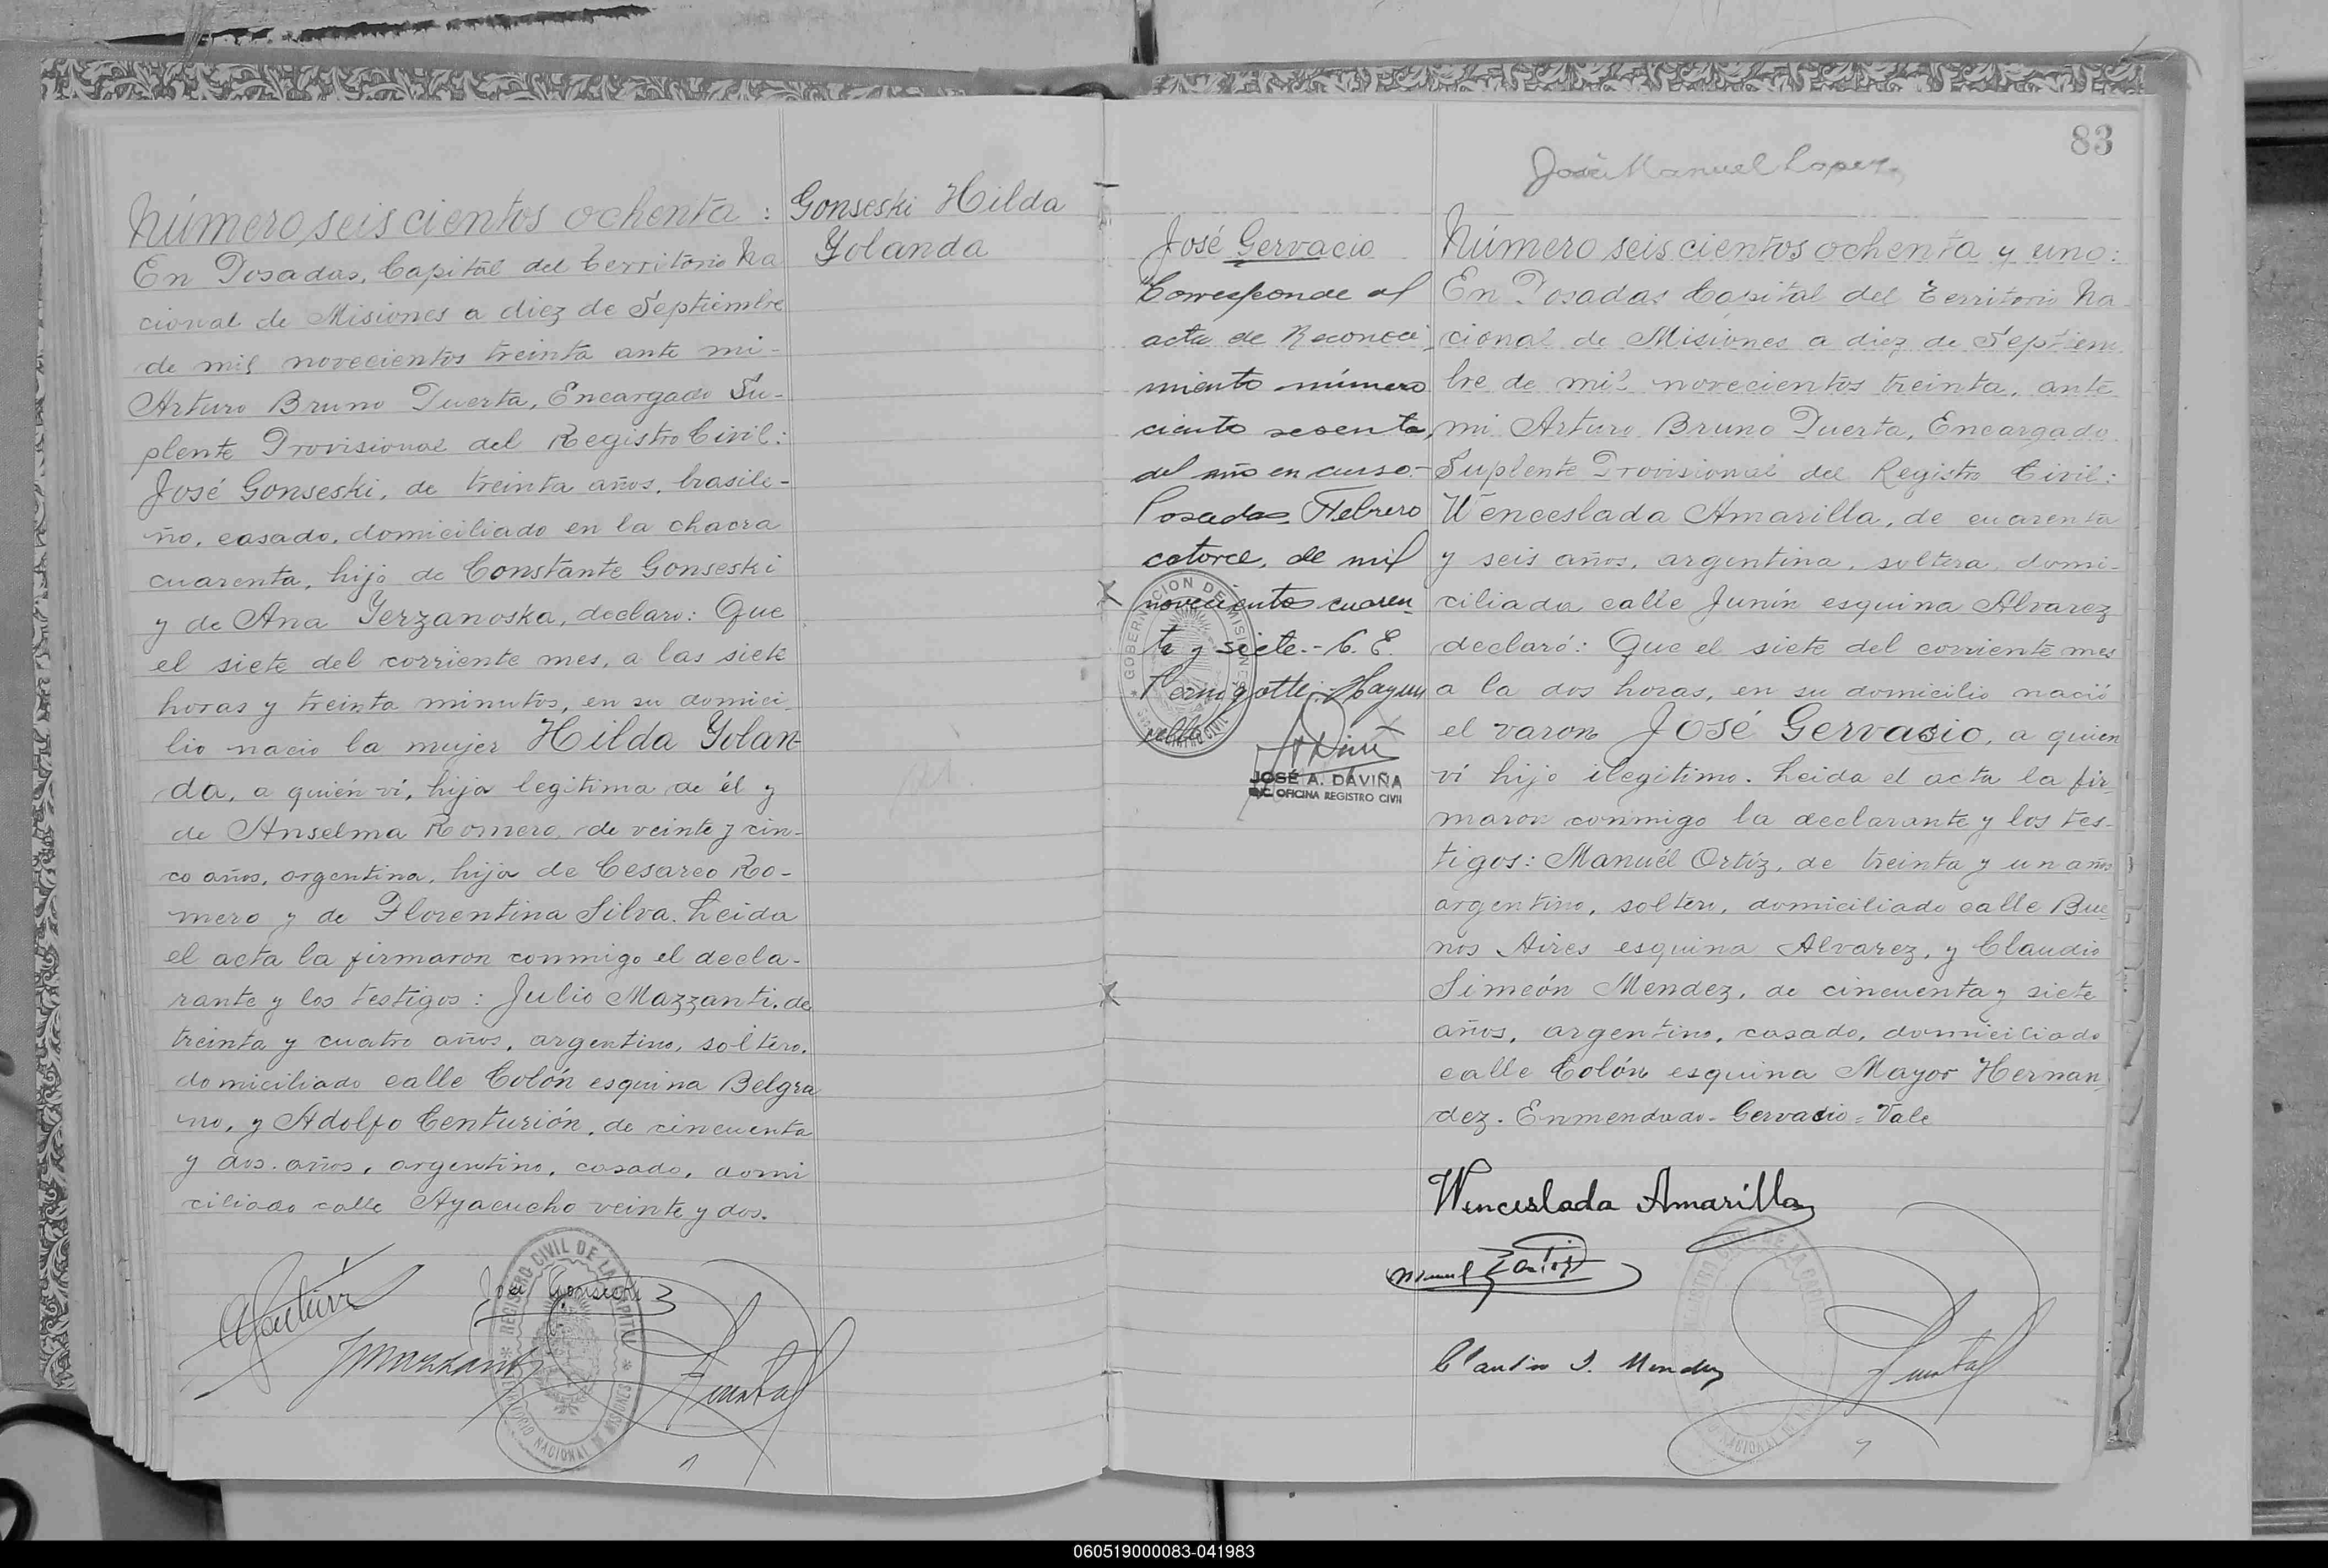 Número seiscientos ochenta :
En Posadas, Capital del Territorio Na
cional de Misiones a diez de Septiembre
de mil novecientos treinta ante mi-
Arturo Bruno Puerta, Encargado Su-
plente Provisional del Registro Civil:
José Gonseski, de treinta años, brasile-
ño, casado, domiciliado en la chacra
cuarenta, hijo de Constante Gonseski
y de Ana Yerzanoska, declaro: Que
el siete del corriente mes, a las siete
horas y treinta minutos, en su domici-
lio nacio la mujer Hilda Yolan-
da, a quién ví, hija legitima de él y
de Anselma Romero, de veinte y cin-
co años, argentina, hija de Cesareo Ro-
mero y de Florentina Silva. Leida
el acta la firmaron conmigo el decla-
rante y los testigos: Julio Mazzanti, de
treinta y cuatro años, argentino, soltero,
domiciliado calle Colón esquina Belgra
no, y Adolfo Centurión, de cincuenta
y dos años, argentino, casado, domi
ciliado calle Ayacucho veinte y dos.
José Gonseski
JMazzanti
Puerta
REGISTRO CIVIL DE LA CAPITAL
TERRITORIO NACIONAL DE MISIONES
Gonseski Hilda
Yolanda
83
José Manuel Lopez
José Gervacio
Corresponde al
acta de Reconoci-
miento número
ciento sesenta,
del año en curso-
Posadas. Febrero
catorce, de mil
novecientos cuaren
ta y siete.- C. E.
GOBERNACION DE MISIONES
REGISTRO CIVIL
JOSÉ A. DAVIÑA
ENC. OFICINA REGISTRO CIVIL
Número seiscientos ochenta y uno:
En Posadas Capital del Territorio Na
cional de Misiones a diez de Septiem
bre de mil novecientos treinta, ante
mi Arturo Bruno Puerta, Encargado
Suplente Provisional del Registro Civil:
Wenceslada Amarilla, de cuarenta
y seis años, argentina, soltera, domi-
ciliada calle Junín esquina Alvarez
declaró: Que el siete del corriente mes
a la dos horas, en su domicilio nació
el varon José Gervasio, a quien
ví hijo ilegitimo. Leida el acta la fir-
maron conmigo la declarante y los tes-
tigos: Manuél Ortíz, de treinta y un años
argentino, soltero, domiciliado calle Bue
nos Aires esquina Alvarez, y Claudio
Simeón Mendez, de cincuenta y siete
años, argentino, casado, domiciliado
calle Colón esquina Mayor Hernan
dez. Enmendado- Gervasio = Vale
Wenceslada Amarilla
Manuel Ortiz
Claudio S. Mendez
Puerta
060519000083-041983